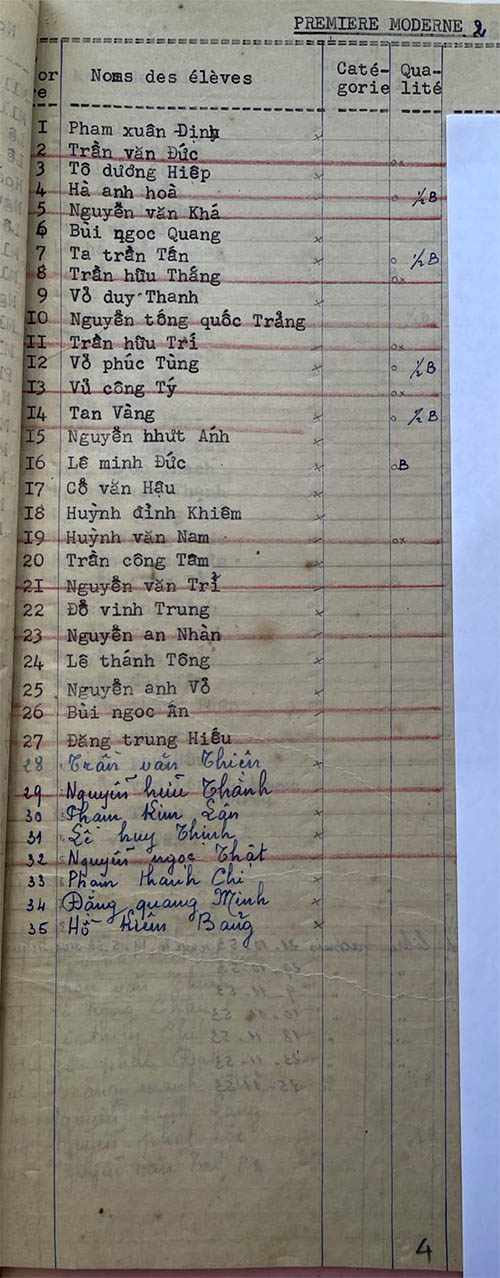 PREMIERE MODERNE 2
or
re Noms des élèves Caté-
gorie Qua-
lité
1 Pham xuân Dinh x
2 Trần văn Đức ox
3 Tô dương Hiêp x
4 Hà anh hoà o ½B
5 Nguyễn văn Khá
6 Bùi ngoc Quang x
7 Ta trần Tấn x o ½B
8 Trần hữu Thắng ox
9 Võ duy Thanh x
10 Nguyễn tống quốc Trång
11 Trần hữu Trí ox
12 Võ phúc Tùng x o ½B
13 Vũ công Tý ox
14 Tan Vàng x o ½B
15 Nguyễn hhưt Ánh x
16 Lê minh Đức x oB
17 Cỗ văn Hậu x
18 Huỳnh đình Khiêm x
19 Huỳnh văn Nam ox
20 Trần công Tâm x
21 Nguyễn văn Trí
22 Đỗ vinh Trung x
23 Nguyễn an Nhàn
24 Lê thánh Tông x
25 Nguyễn anh Võ x
26 Bùi ngoc Ấn
27 Đăng trung Hiếu
28 Trần văn Thiên x
29 Nguyễn hữu Thành
30 Pham Kim Lân x
31 Lê huy Thịnh x
32 Nguyễn ngọc Thật
33 Phạm thanh Chi x
34 Đặng quang Minh x
35 Hồ Kiêm Bằng x
4